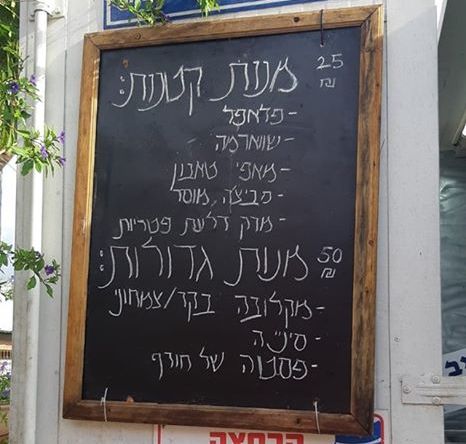 מנות קטנות: 25 ₪
- פלאפל
- שווארמה
- מאפי טאבון
- סביצ'ה מוסר
- מרק דלעת פטריות
מנות גדולות: 50 ₪
- מקלובה בקר/צמחוני
- סיניה
- פסטה של חורף